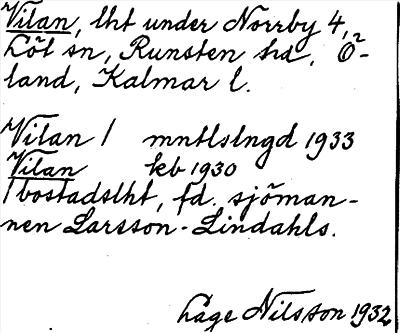 Vilan, lht under Norrby 4,2
Löt sn, Runsten hd, Ö-
land, Kalmar l.
Vilan / mntlslngd 1933
Vilan kb 1930
/bostadslht, fd. sjöman-
nen Larsson-Lindahls.
Låge Nilsson 1932